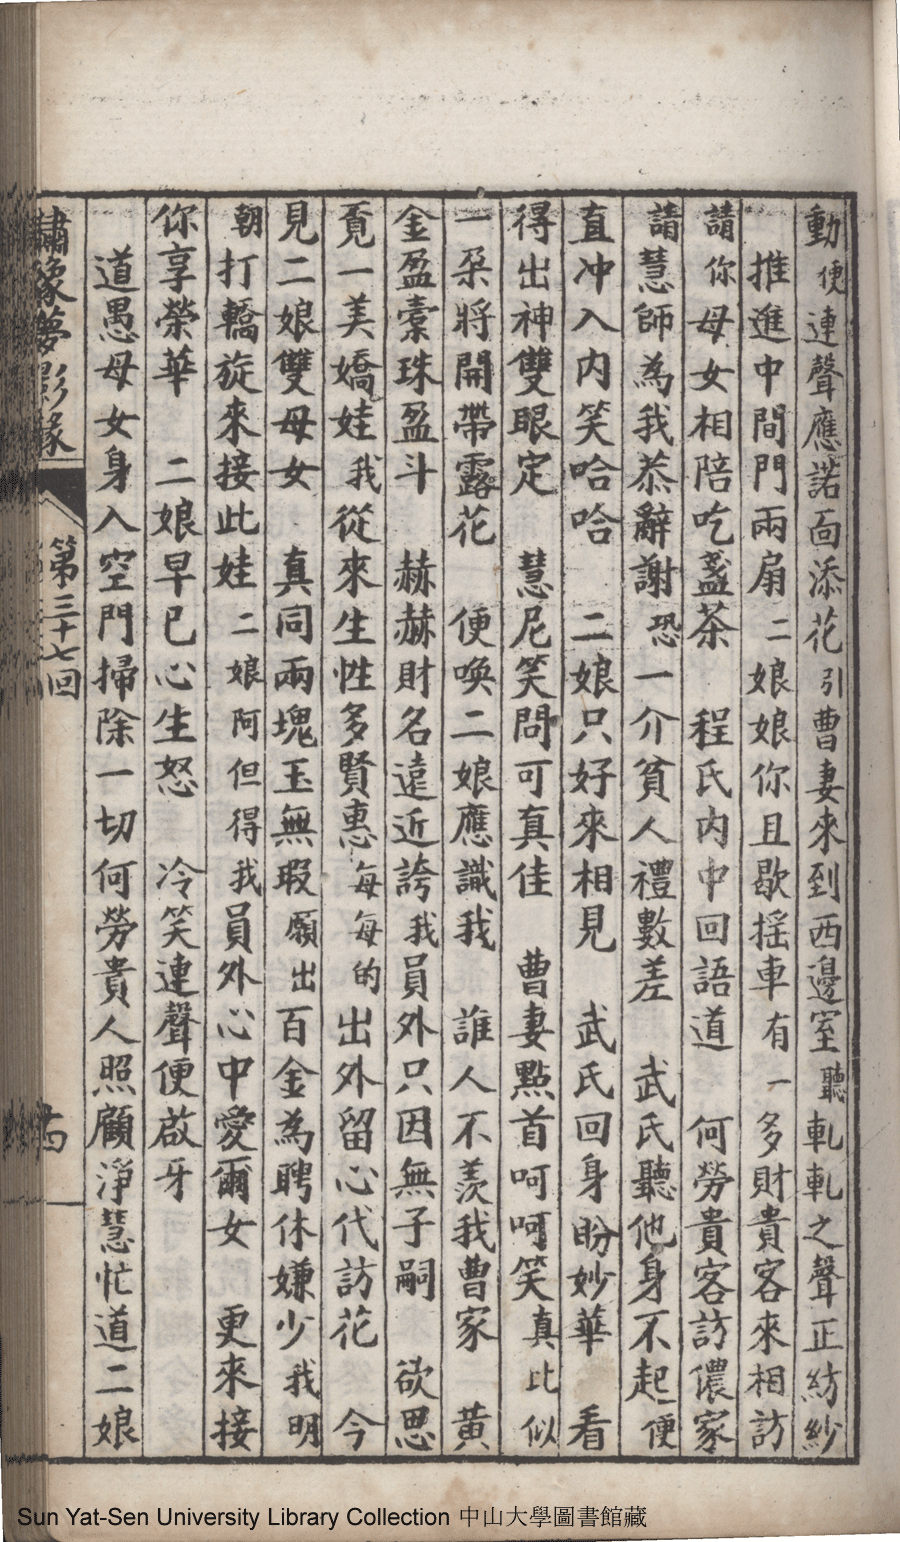 動便連聲應諾面添花引曹妻來到西邊室聽軋軋之聲正紡紗
推進中間門兩扇二娘娘你且歇搖車有一多財貴客來相訪
請你母女相陪吃盞茶 程氏內中回語道 何勞貴客訪儂家
請慧師為我恭辭謝恐一介貧人禮數差 武氏聽他身不起便
直冲入內笑哈哈 二娘只好來相見 武氏回身盼妙華 看
得出神雙眼定 慧尼笑問可真佳 曹妻點首呵呵笑真比似
一朶將開帶露花 便喚二娘應識我 誰人不羨我曹家 黃
金盈橐珠盈斗 赫赫財名遠近誇我員外只因無子嗣 欲思
覔一美嬌娃我從來生性多賢惠每每的出外留心代訪花 今
見二娘雙母女 真同兩塊玉無瑕願出百金為聘休嫌少我明
朝打轎旋來接此娃二娘阿但得我員外心中愛爾女 更來接
你享榮華 二娘早已心生怒 冷笑連聲便啟牙
道愚母女身入空門掃除一切何勞貴人照顧淨慧忙道二娘
繡像夢影緣 第三十七回 十四
Sun Yat-Sen University Library Collection 中山大學圖書館藏